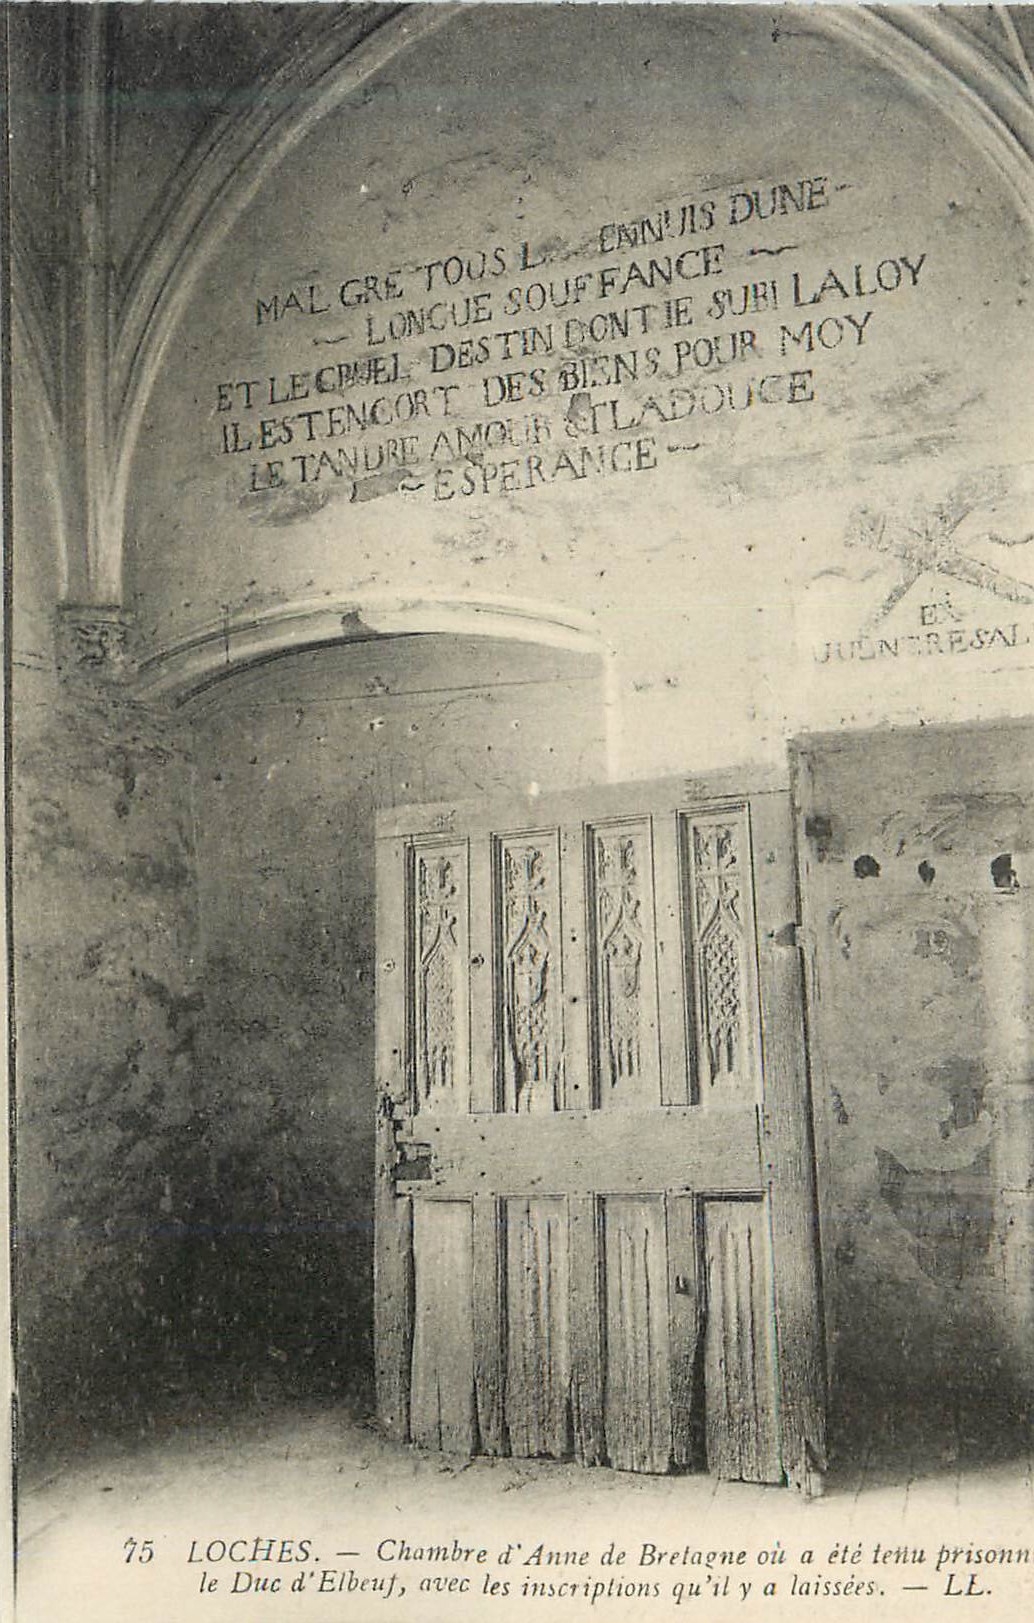 MALGRE TOUS L ENNUIS DUNE -
~ LONGUE SOUFFANCE ~
ET LE CRUEL DESTIN DONT IE SUBI LA LOY
IL EST ENCORT DES BIENS POUR MOY
LE TANDRE AMOUR & LA DOUCE
~ ESPERANCE ~
EX
75 LOCHES. — Chambre d'Anne de Bretagne où a été tenu prisonn
le Duc d'Elbeuf, avec les inscriptions qu'il y a laissées. — LL.